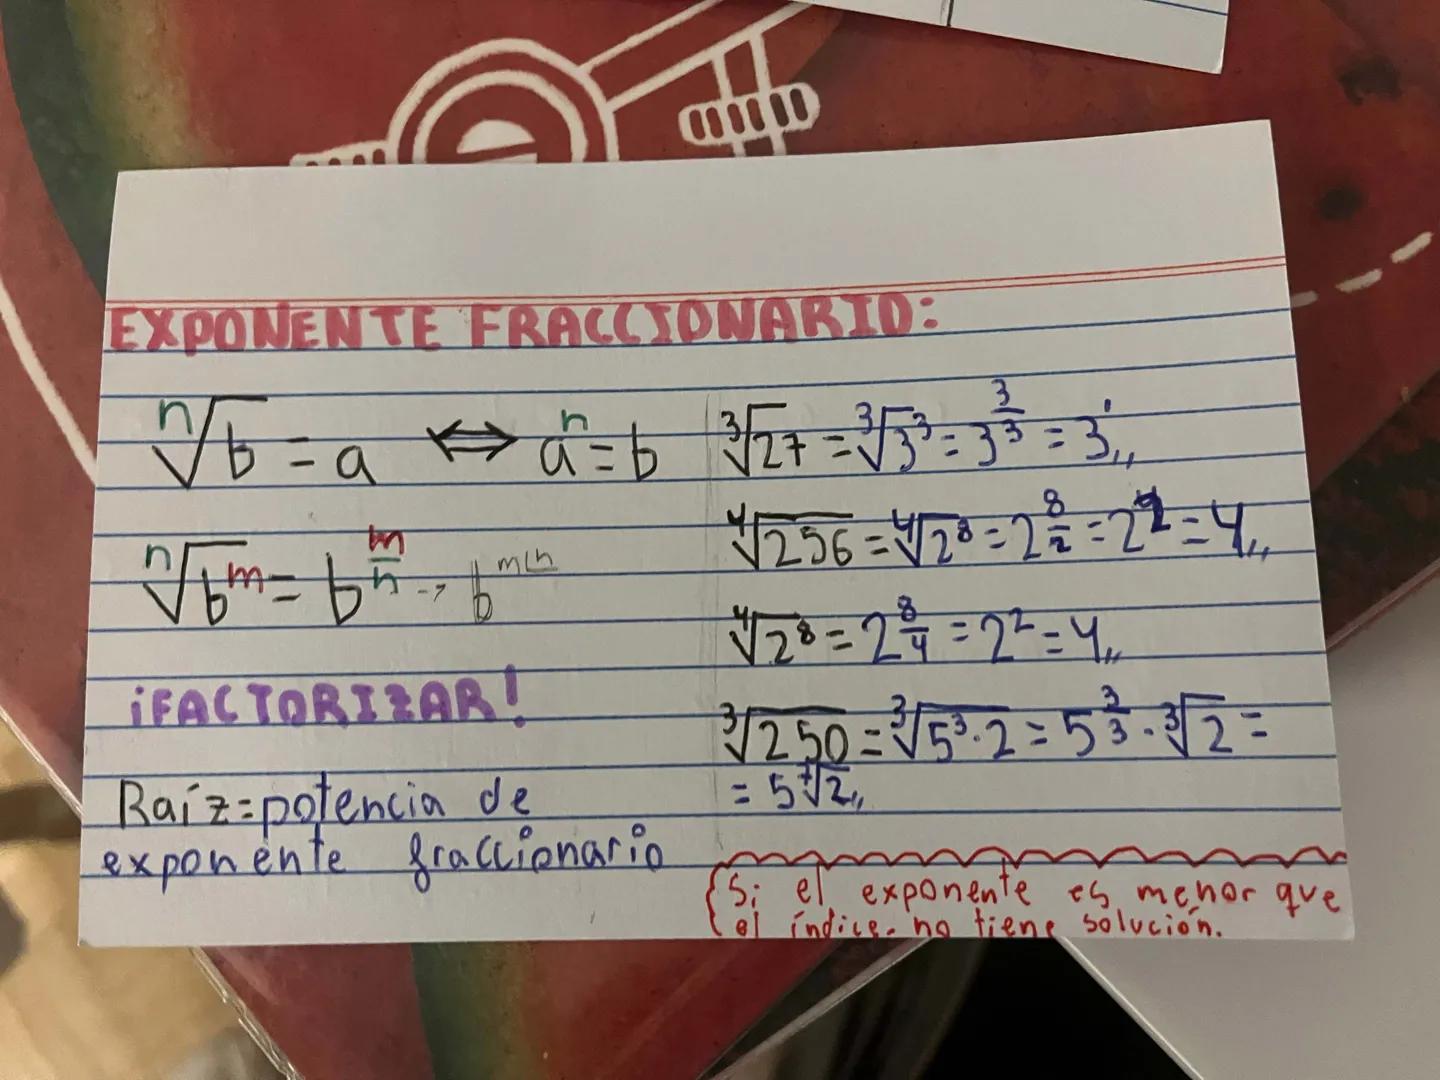 EXPONENTE FRACCIONARIO:
ⁿ√b = a ⟺ aⁿ = b
ⁿ√bᵐ = b^(m/n) → b^(m∟n)
¡FACTORIZAR!
Raíz = potencia de
exponente fraccionario
³√27 = ³√3³ = 3^(3/3) = 3¹,,
⁴√256 = ⁴√2⁸ = 2^(8/2) = 2² = 4,,
⁴√2⁸ = 2^(8/4) = 2² = 4,,
³√250 = ³√5³·2 = 5^(3/3) · ³√2 =
= 5 √2,,
Si el exponente es menor que
el índice. no tiene solución.